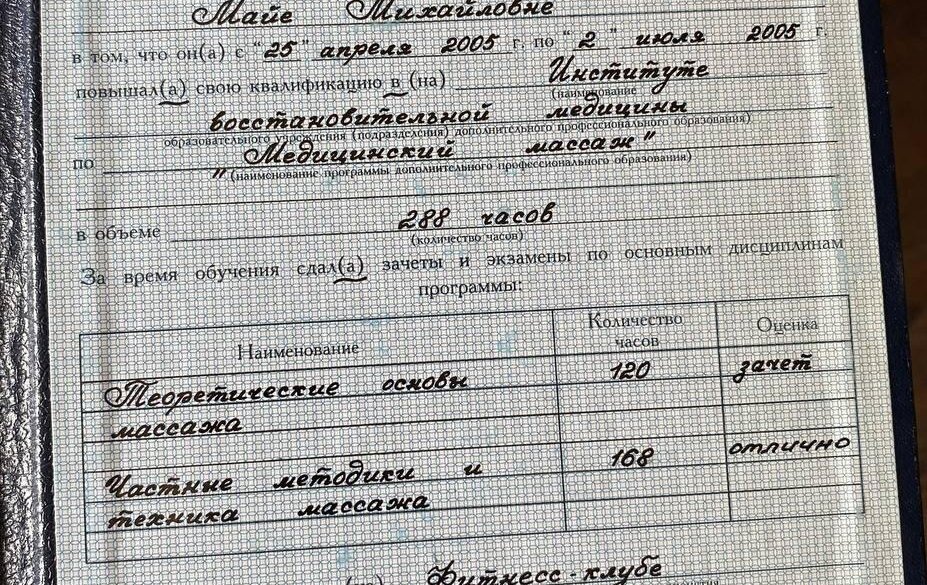 Майе Михайловне
в том, что он(а) с "25" апреля 2005 г. по "2" июля 2005 г.
повышал(а) свою квалификацию в (на) Институте
(наименование
восстановительной медицины
образовательного учреждения (подразделения) дополнительного профессионального образования)
по "Медицинский массаж"
(наименование программы дополнительного профессионального образования)
в объеме 288 часов
(количество часов)
За время обучения сдал(а) зачеты и экзамены по основным дисциплинам
программы:
Наименование Количество часов Оценка
Теоретические основы 120 зачет
массажа
Частные методики и 168 отлично
техника массажа
Фитнесс-клубе